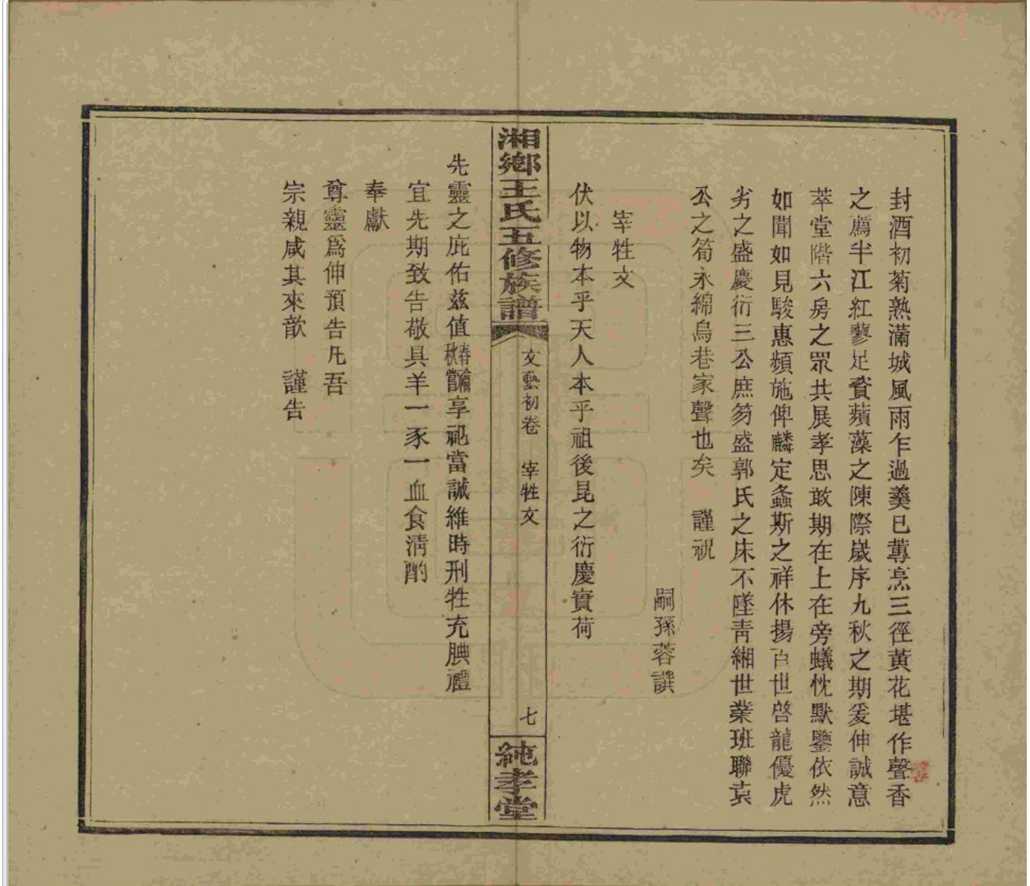 封酒初菊熟滿城風雨乍過羹已蓴烹三徑黃花堪作馨香
之薦半江紅蓼足賚蘋藻之陳際歲序九秋之期爰伸誠意
萃堂階六房之眾共展孝思敢期在上在旁蟻忱默鑒依然
如聞如見駿惠頻施俾麟定螽斯之祥休揚百世啓龍優虎
劣之盛慶衍三公庶笏盛郭氏之床不墜青緗世業班聯袁
公之笥永綿烏巷家聲也矣 謹祝
嗣孫蓉譔
宰牲文
伏以物本乎天人本乎祖後昆之衍慶實荷
湘鄉王氏五修族譜 文藝初卷 宰牲文 七 純孝堂
先靈之庇佑茲值春禴秋嘗享祀當誠維時刑牲充腆禮
宜先期致告敬具羊一豕一血食清酌
奉獻
尊靈爲伸預告凡吾
宗親咸其來歆 謹告